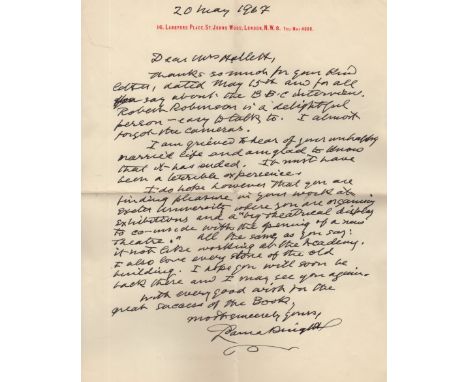 20 May 1967
16, Langford Place, St. Johns Wood, London, N.W.8. Tel: Mai 4228.
Dear Mrs Hallett,
Thanks so much for your kind
letter, dated May 15th and for all
you say about the B.B.C interview.
Robert Robinson is a delightful
person - easy to talk to. I almost
forgot the cameras.
I am grieved to hear of your unhappy
married life and am glad to know
that it has ended. It must have
been a terrible experience.
I do hope however that you are
finding pleasure in your work at
Exeter University where you are organising
exhibitions and a "big theatrical display
to co-inside with the opening of a new
theatre." All the same, as you say:
it not like working at the Academy.
I also love every stone of the old
building. I hope you will soon be
back there and I may see you again.
With every good wish for the
great success of the Book,
most sincerely yours,
Laura Knight